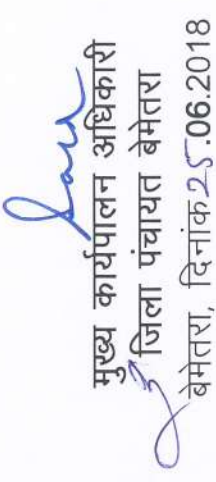 मुख्य कार्यपालन अधिकारी
जिला पंचायत बेमेतरा
बेमेतरा, दिनांक 25.06.2018